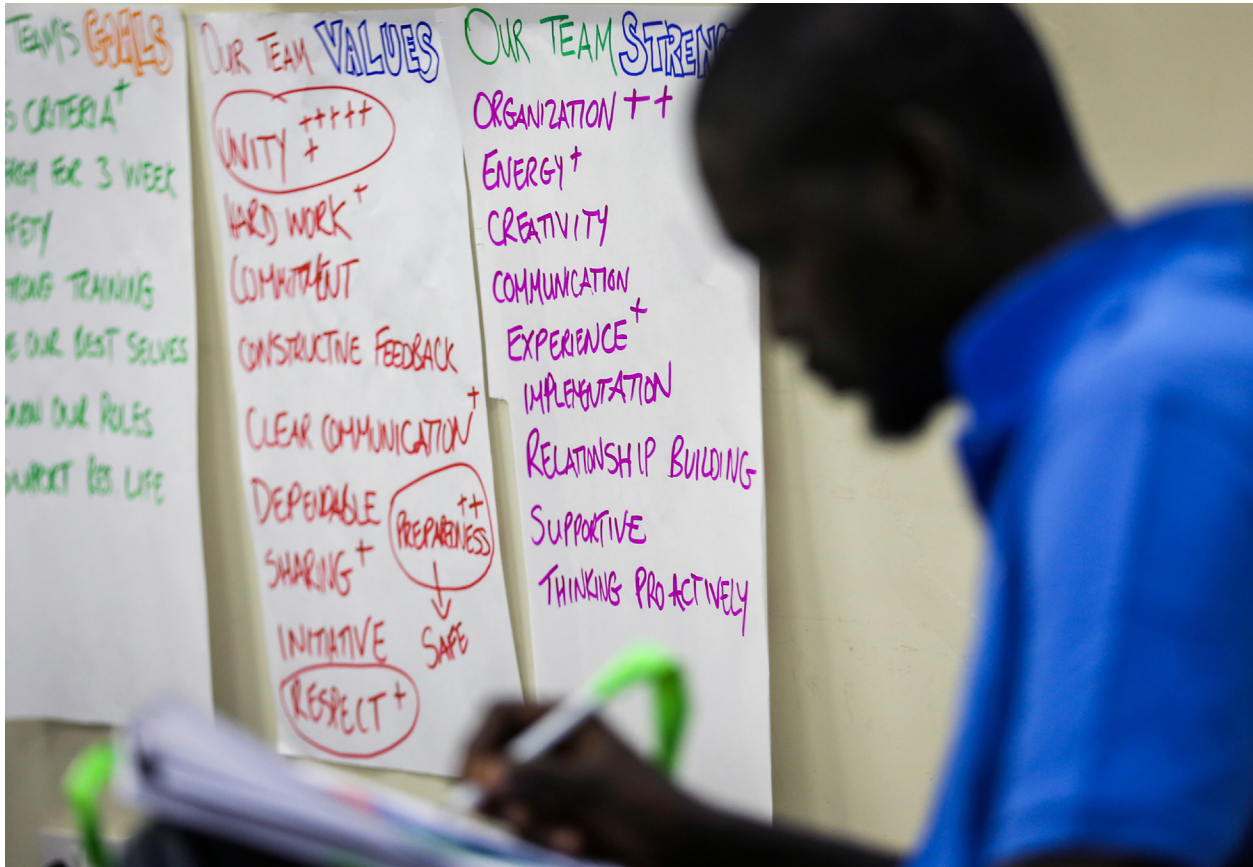 TEAM'S GOALS
CRITERIA+
FOR 3 WEEK
TRAINING
OUR BEST SELVES
KNOW OUR ROLES
SUPPORT RES. LIFE
OUR TEAM VALUES
UNITY +++++
+
HARD WORK+
COMMITMENT
CONSTRUCTIVE FEEDBACK
CLEAR COMMUNICATION+
DEPENDABLE
PREPAREDNESS ++
SHARING+
INITIATIVE
SAFE
RESPECT+
OUR TEAM
ORGANIZATION ++
ENERGY+
CREATIVITY
COMMUNICATION
EXPERIENCE+
IMPLEMENTATION
RELATIONSHIP BUILDING
SUPPORTIVE
THINKING PROACTIVELY